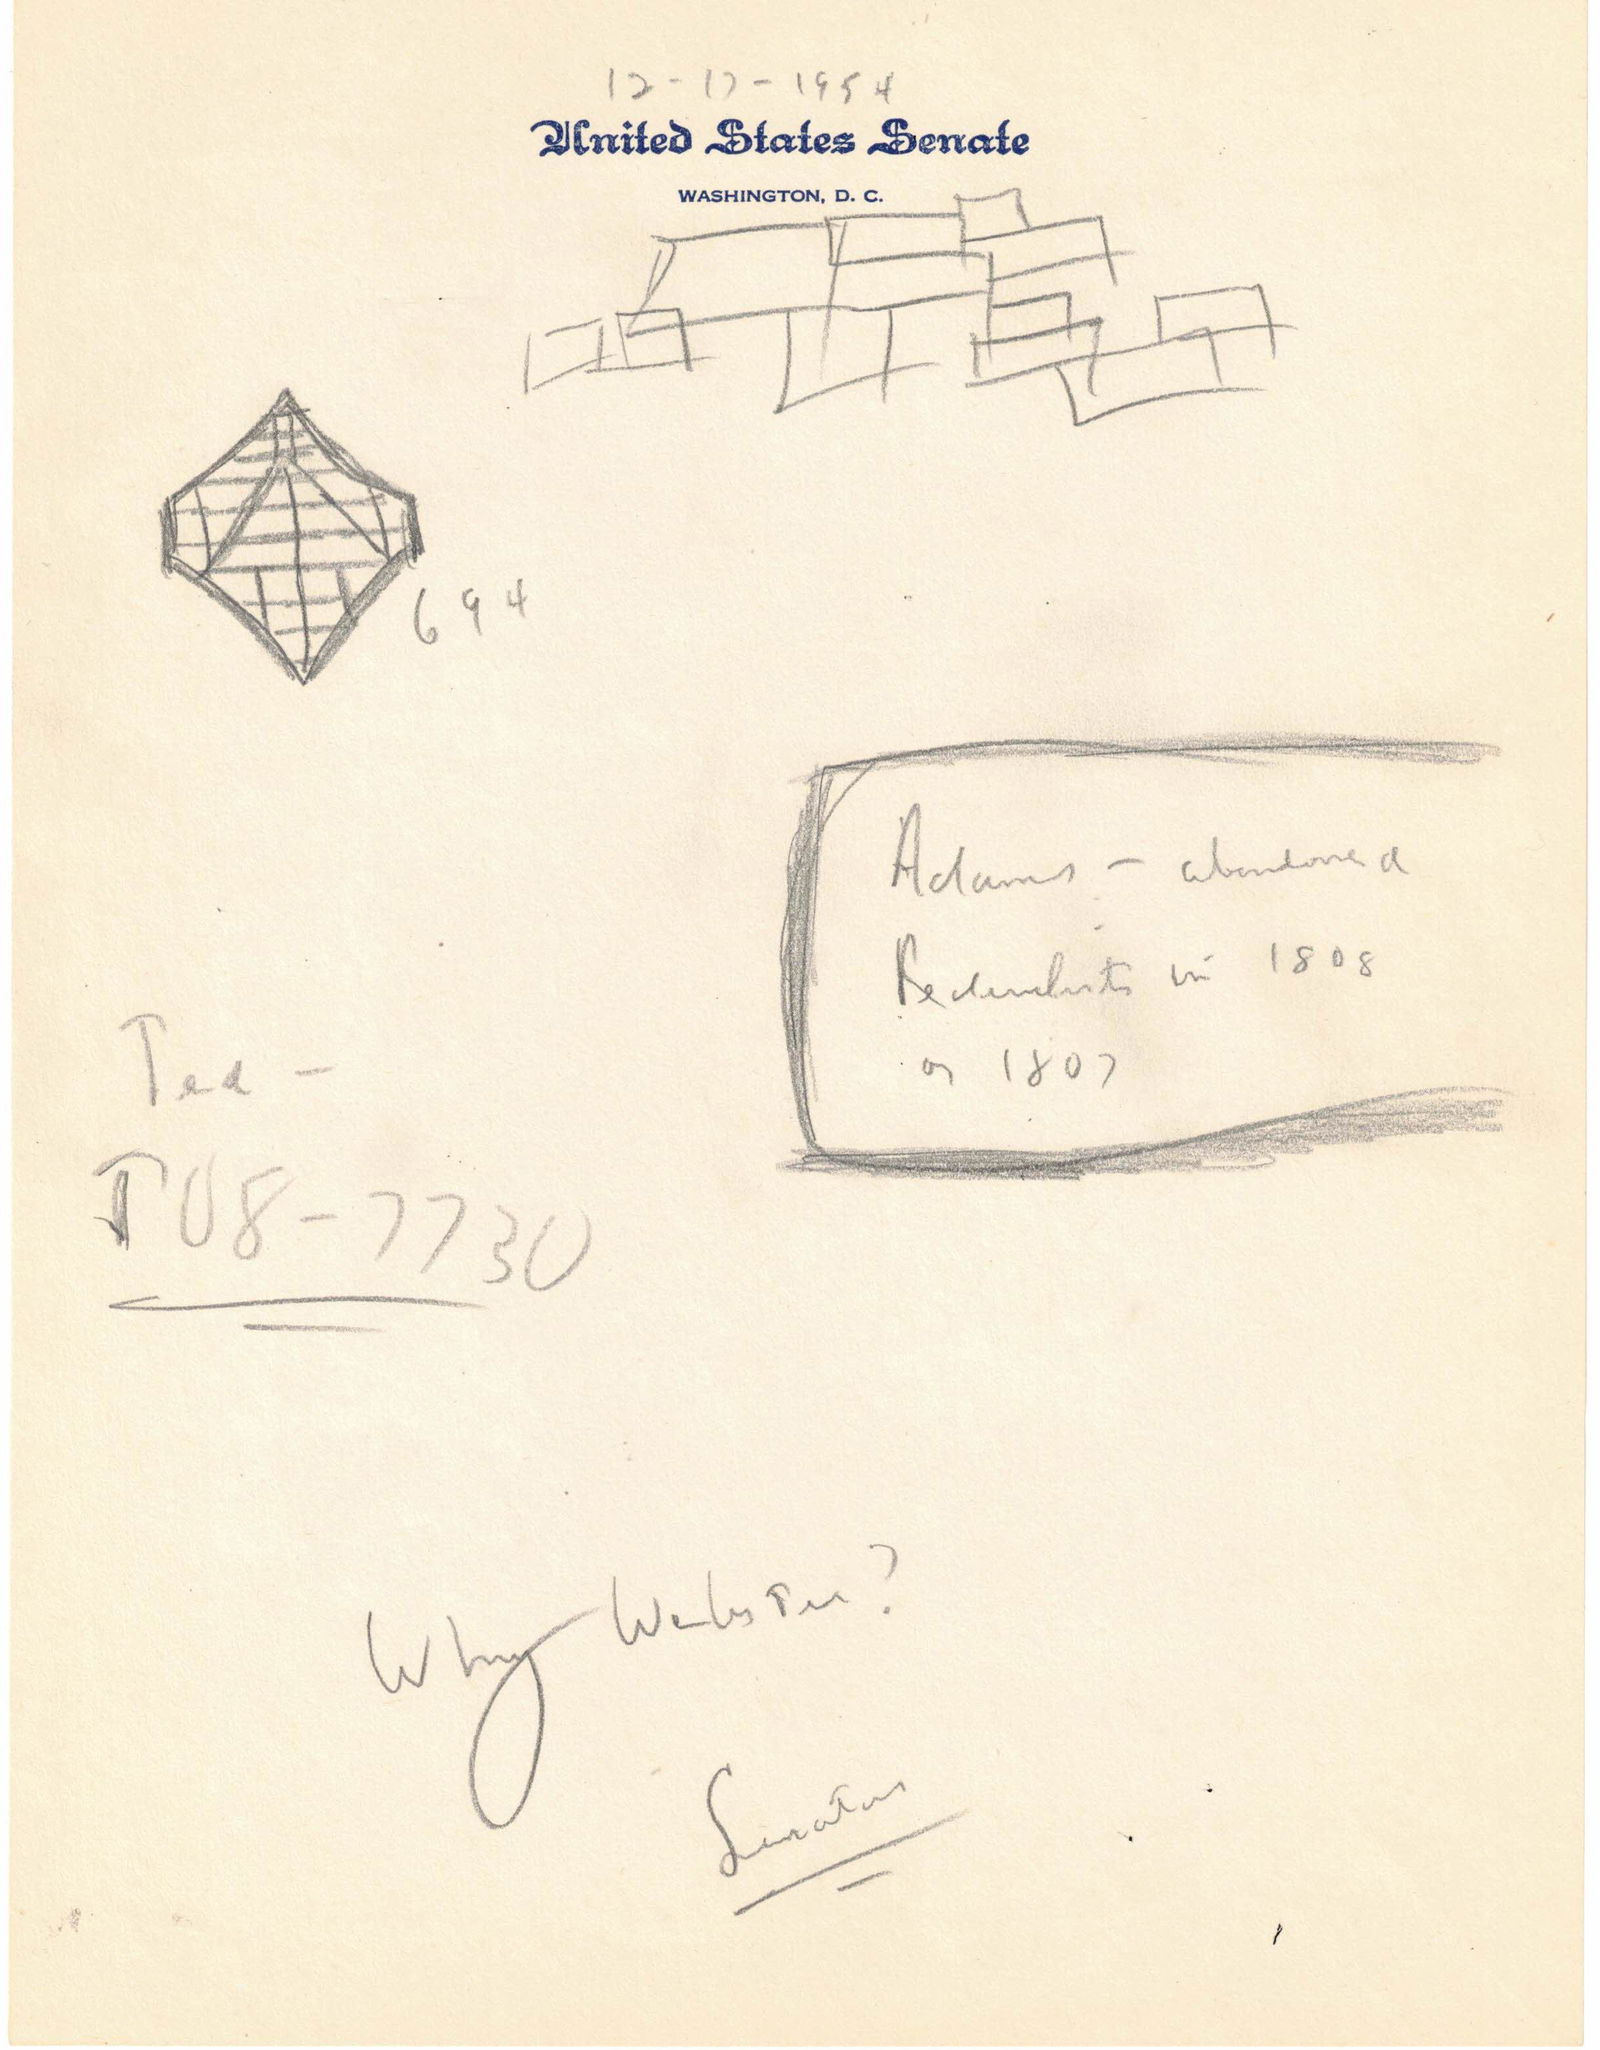 12-17-1954
United States Senate
WASHINGTON, D. C.
694
Adams - abandoned
Federalists in 1808
or 1807
Ted -
TU8-7730
Why Webster?
Senator